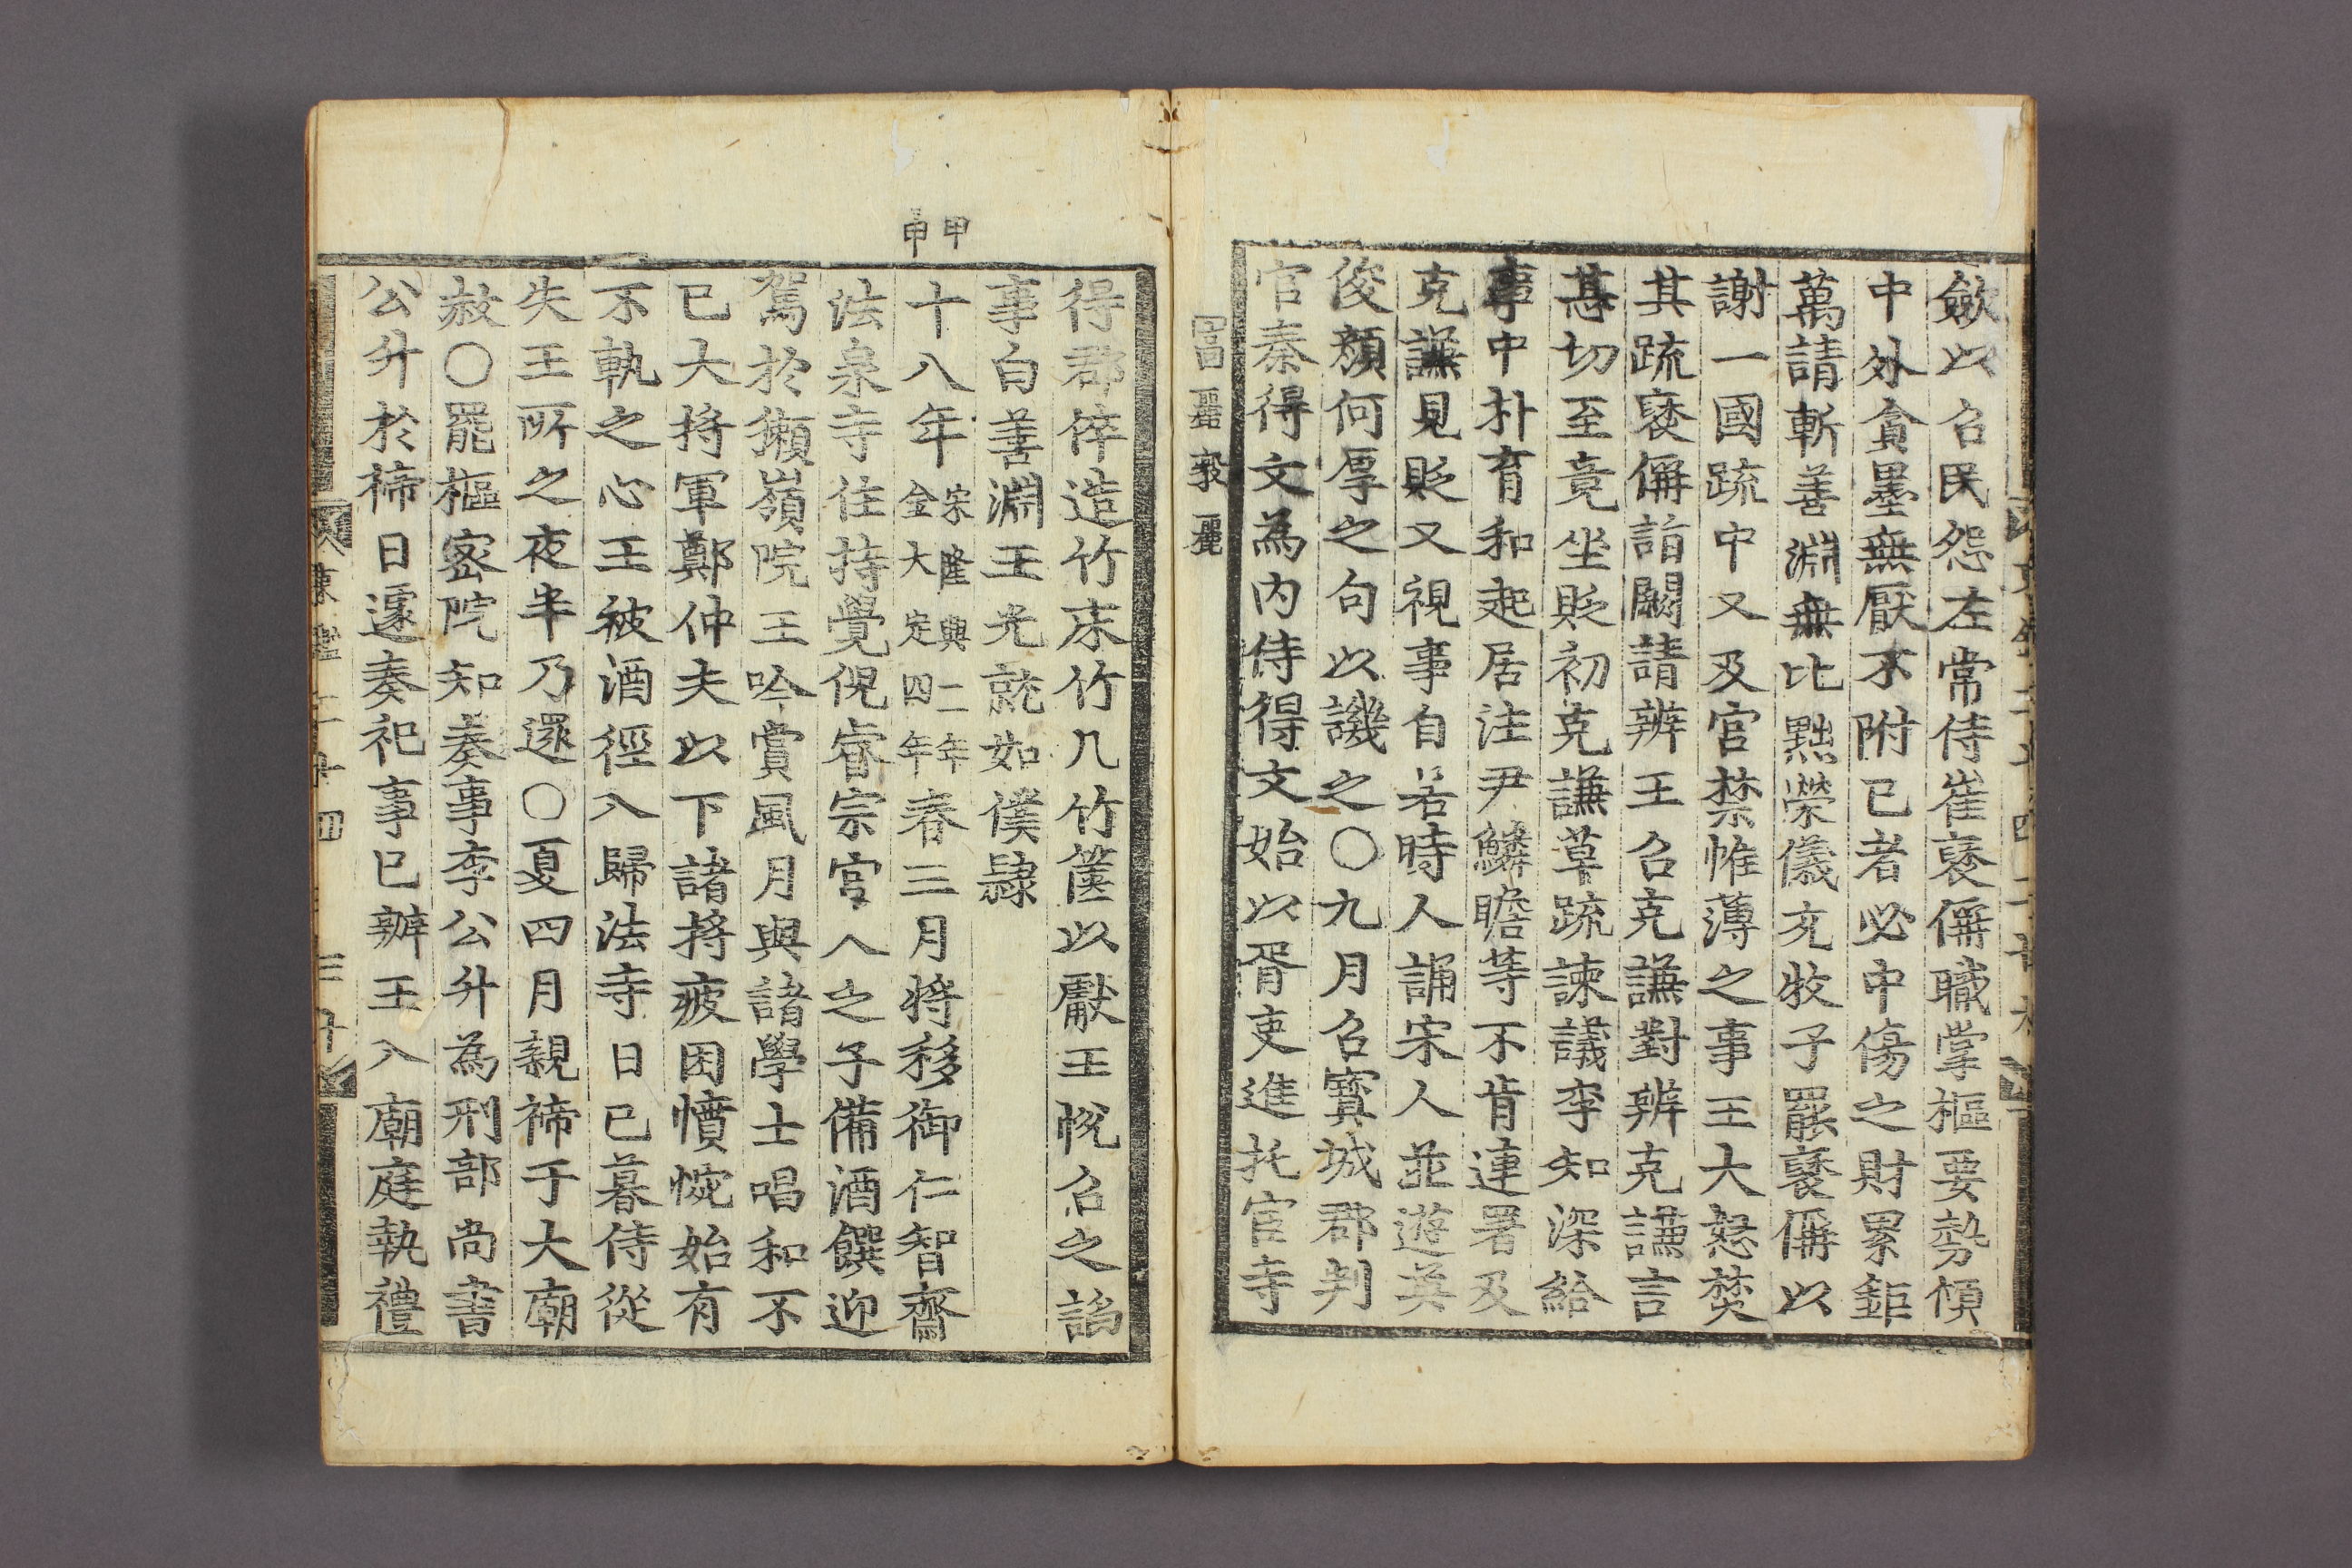 歛以召民怨左常侍崔襃偁職掌樞要勢傾
中外貪墨無厭不附已者必中傷之財累鉅
萬請斬善淵無比黜榮儀充牧子罷襃偁以
謝一國疏中又及宫禁帷薄之事王大怒焚
其疏襃偁詣闕請辨王召克謙對辨克謙言
甚切至竟坐貶初克謙草疏諫議李知深給
事中朴育和起居注尹鱗瞻等不肯連署及
克謙見貶又視事自若時人誦宋人並遊英
俊顔何厚之句以譏之○九月召寳城郡判
官秦得文為内侍得文始以胥吏進托宦寺
得郡倅造竹床竹几竹篋以獻王悅召之諂
事白善淵王光就如僕隷
甲申
十八年宋隆興二年金大定四年春三月將移御仁智齋
法泉寺住持覺倪睿宗宮人之子備酒饌迎
駕於獺嶺院王吟賞風月與諸學士唱和不
已大將軍鄭仲夫以下諸將疲困憤惋始有
不軌之心王被酒徑入歸法寺日已暮侍從
失王所之夜半乃還○夏四月親禘于大廟
赦○罷樞密院知奏事李公升為刑部尚書
公升於禘日遽奏祀事已辦王入廟庭執禮